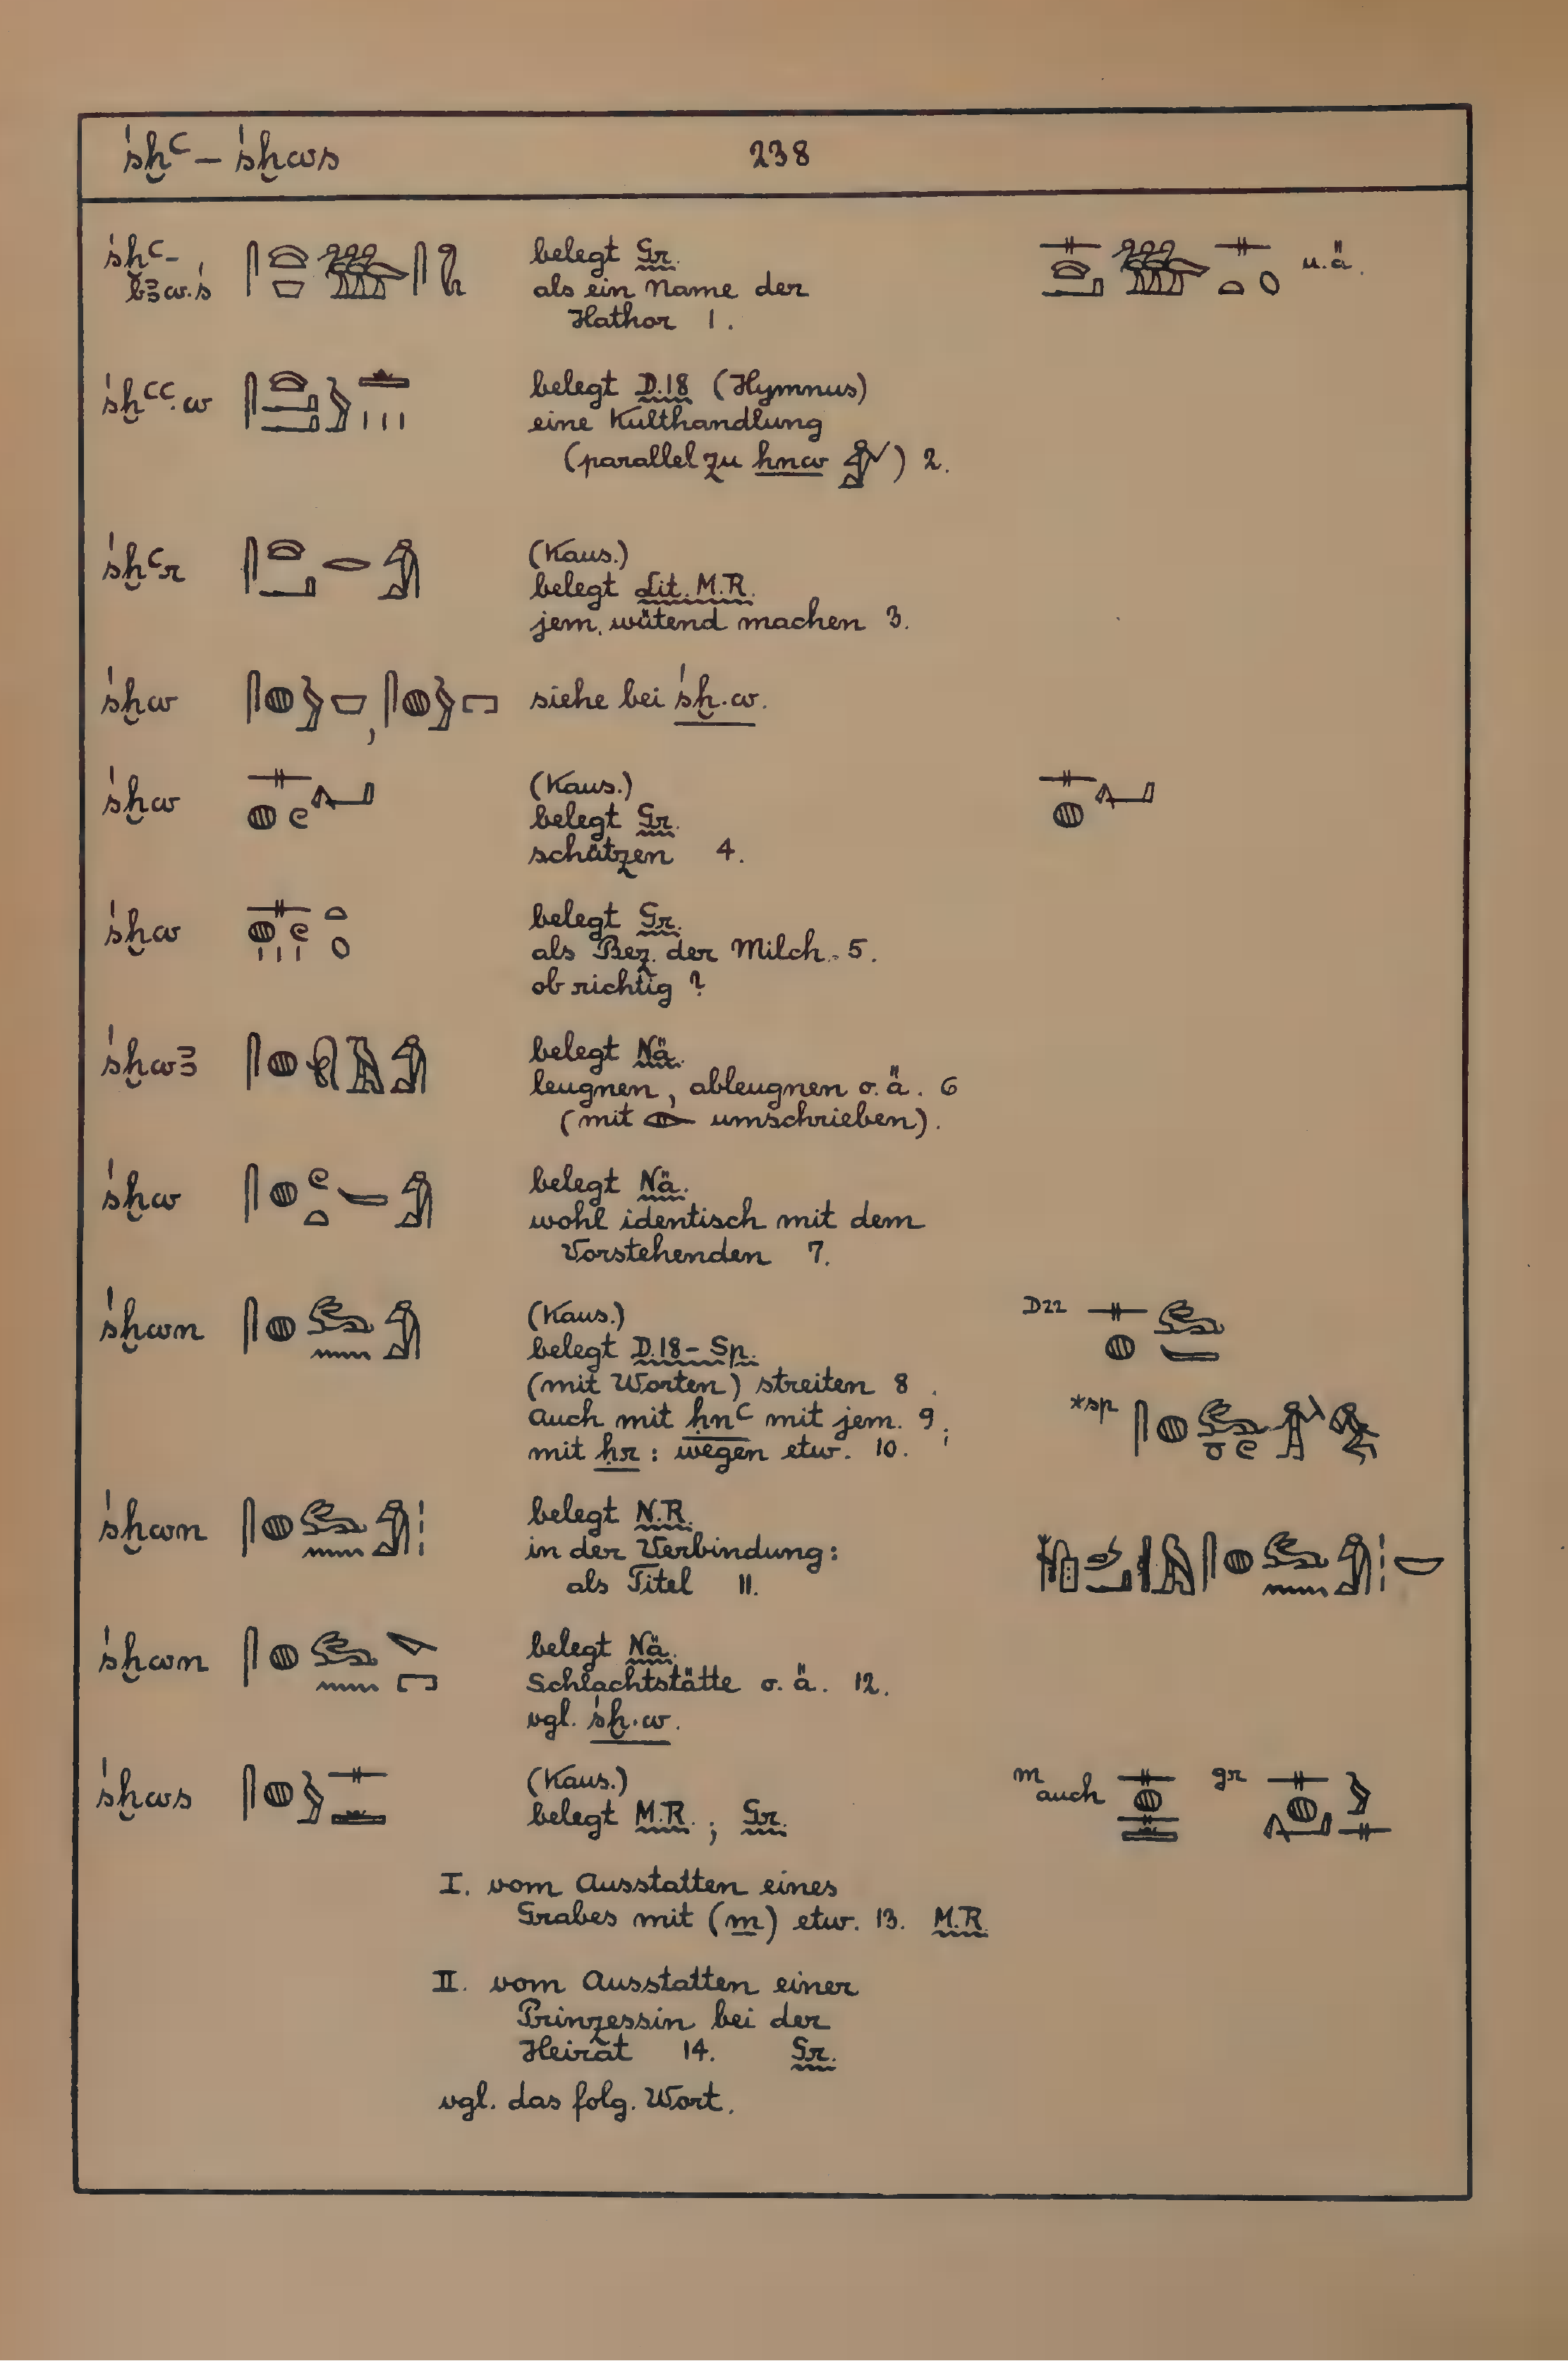 śḫꜥ – śḫws 238
śḫꜥ- belegt Gr. u.ä.
bꜣw.ś als ein Name der
Hathor 1.
śḫꜥꜥ.w belegt D.18 (Hymnus)
eine Kulthandlung
(parallel zu hnw) 2.
śḫꜥr (Kaus.)
belegt Lit. M.R.
jem. wütend machen 3.
śḫw , siehe bei śḫ.w.
śḫw (Kaus.)
belegt Gr.
schätzen 4.
śḫw belegt Gr.
als Bez. der Milch. 5.
ob richtig?
śḫwꜣ belegt Nä.
leugnen, ableugnen o.ä. 6
(mit umschrieben).
śḫw belegt Nä.
wohl identisch mit dem
Vorstehenden 7.
śḫwn (Kaus.) D22
belegt D.18 – Sp.
(mit Worten) streiten 8.
auch mit ḥnꜥ mit jem. 9; *sp
mit ḥr: wegen etw. 10.
śḫwn belegt N.R.
in der Verbindung:
als Titel 11.
śḫwn belegt Nä.
Schlachtstätte o.ä. 12.
vgl. śḫ.w.
śḫws (Kaus.) m auch gr
belegt M.R.; Gr.
I. vom Ausstatten eines
Grabes mit (m) etw. 13. M.R.
II. vom Ausstatten einer
Prinzessin bei der
Heirat 14. Gr.
vgl. das folg. Wort.